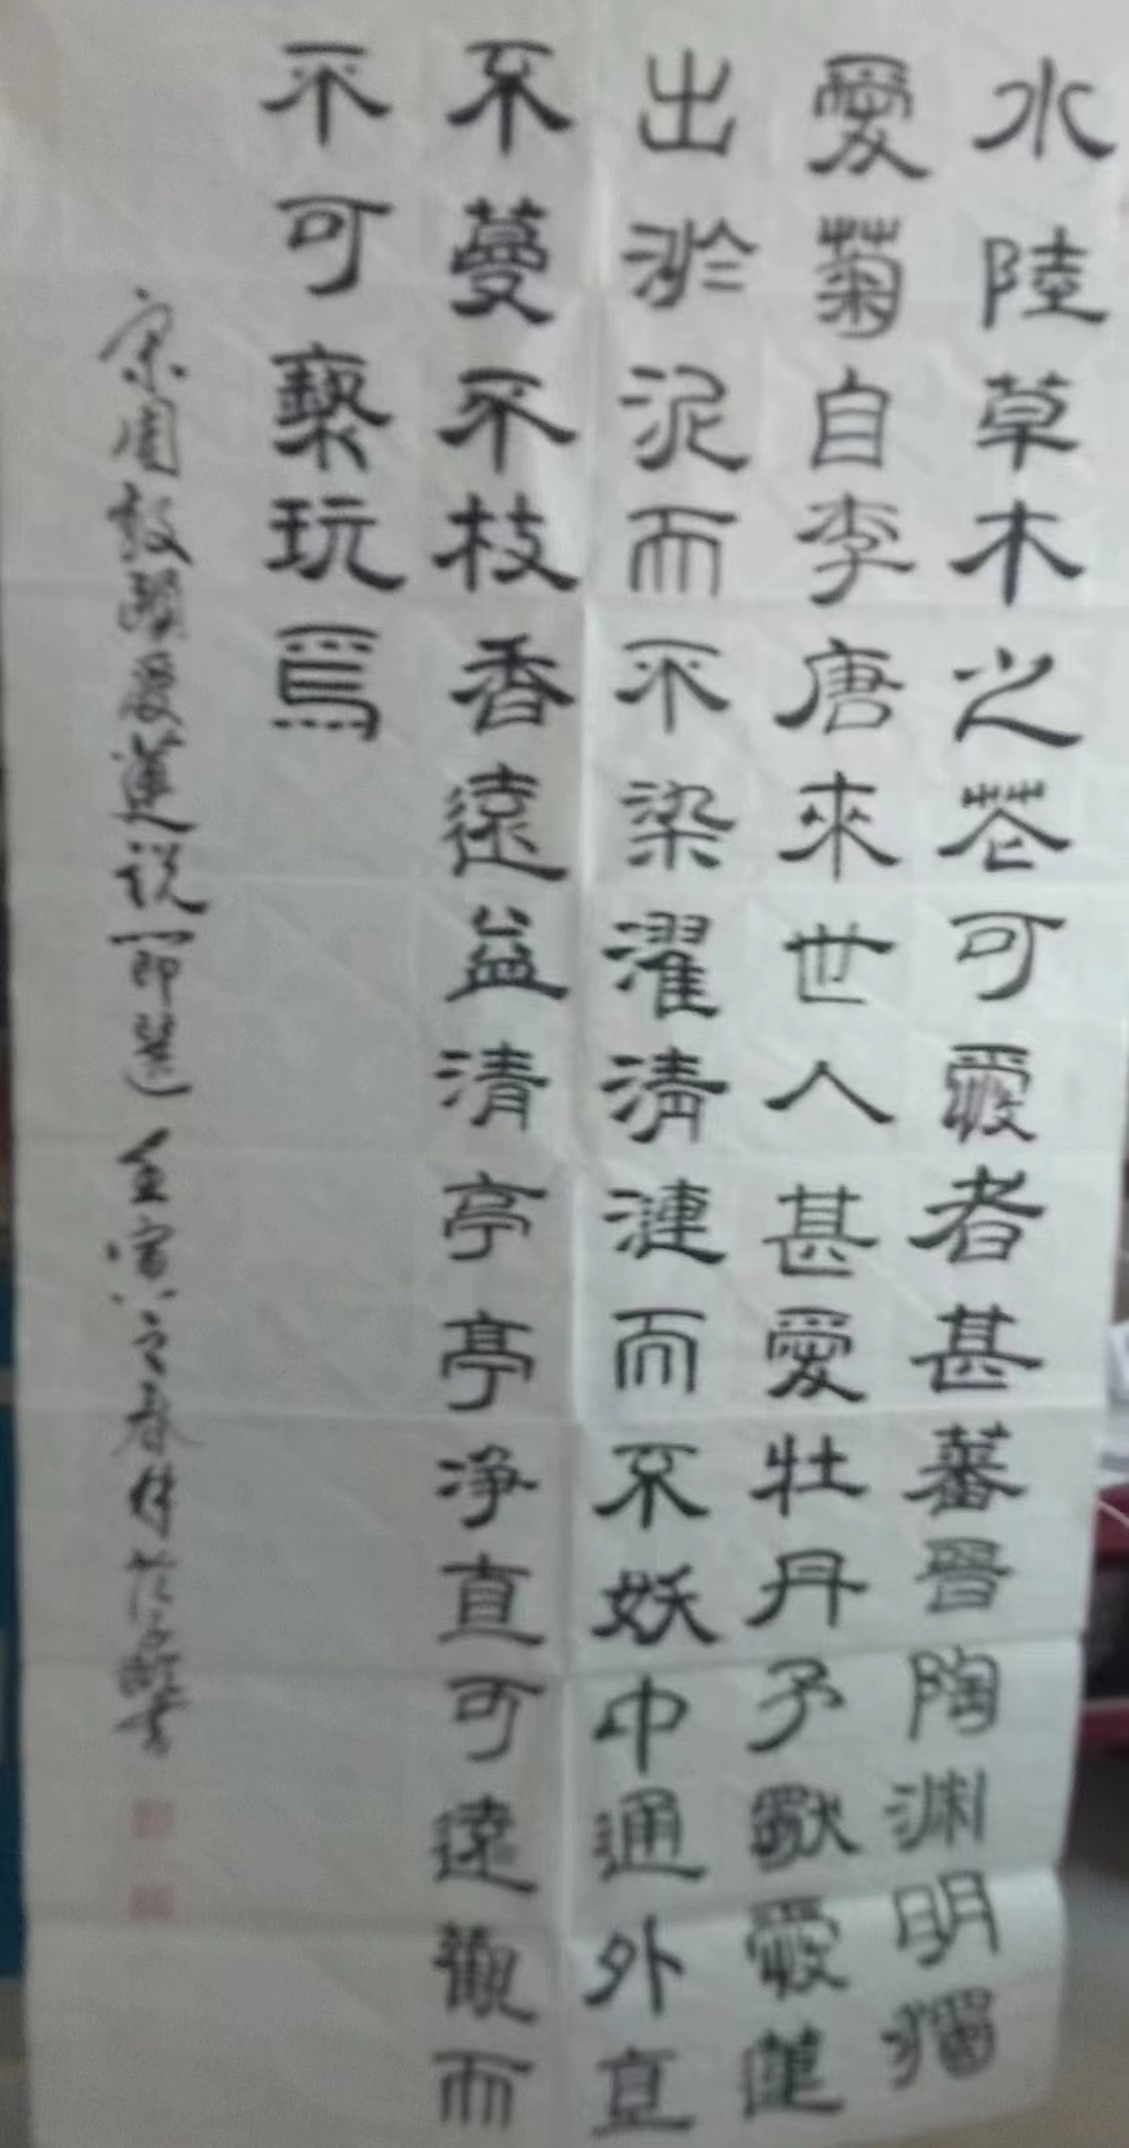 水陸草木之花可愛者甚蕃晉陶渊明獨
愛菊自李唐來世人甚愛牡丹予獨愛蓮
出淤泥而不染濯清漣而不妖中通外直
不蔓不枝香遠益清亭亭净直可遠觀而
不可褻玩焉
宋周敦頤愛蓮說一節選 壬寅之春